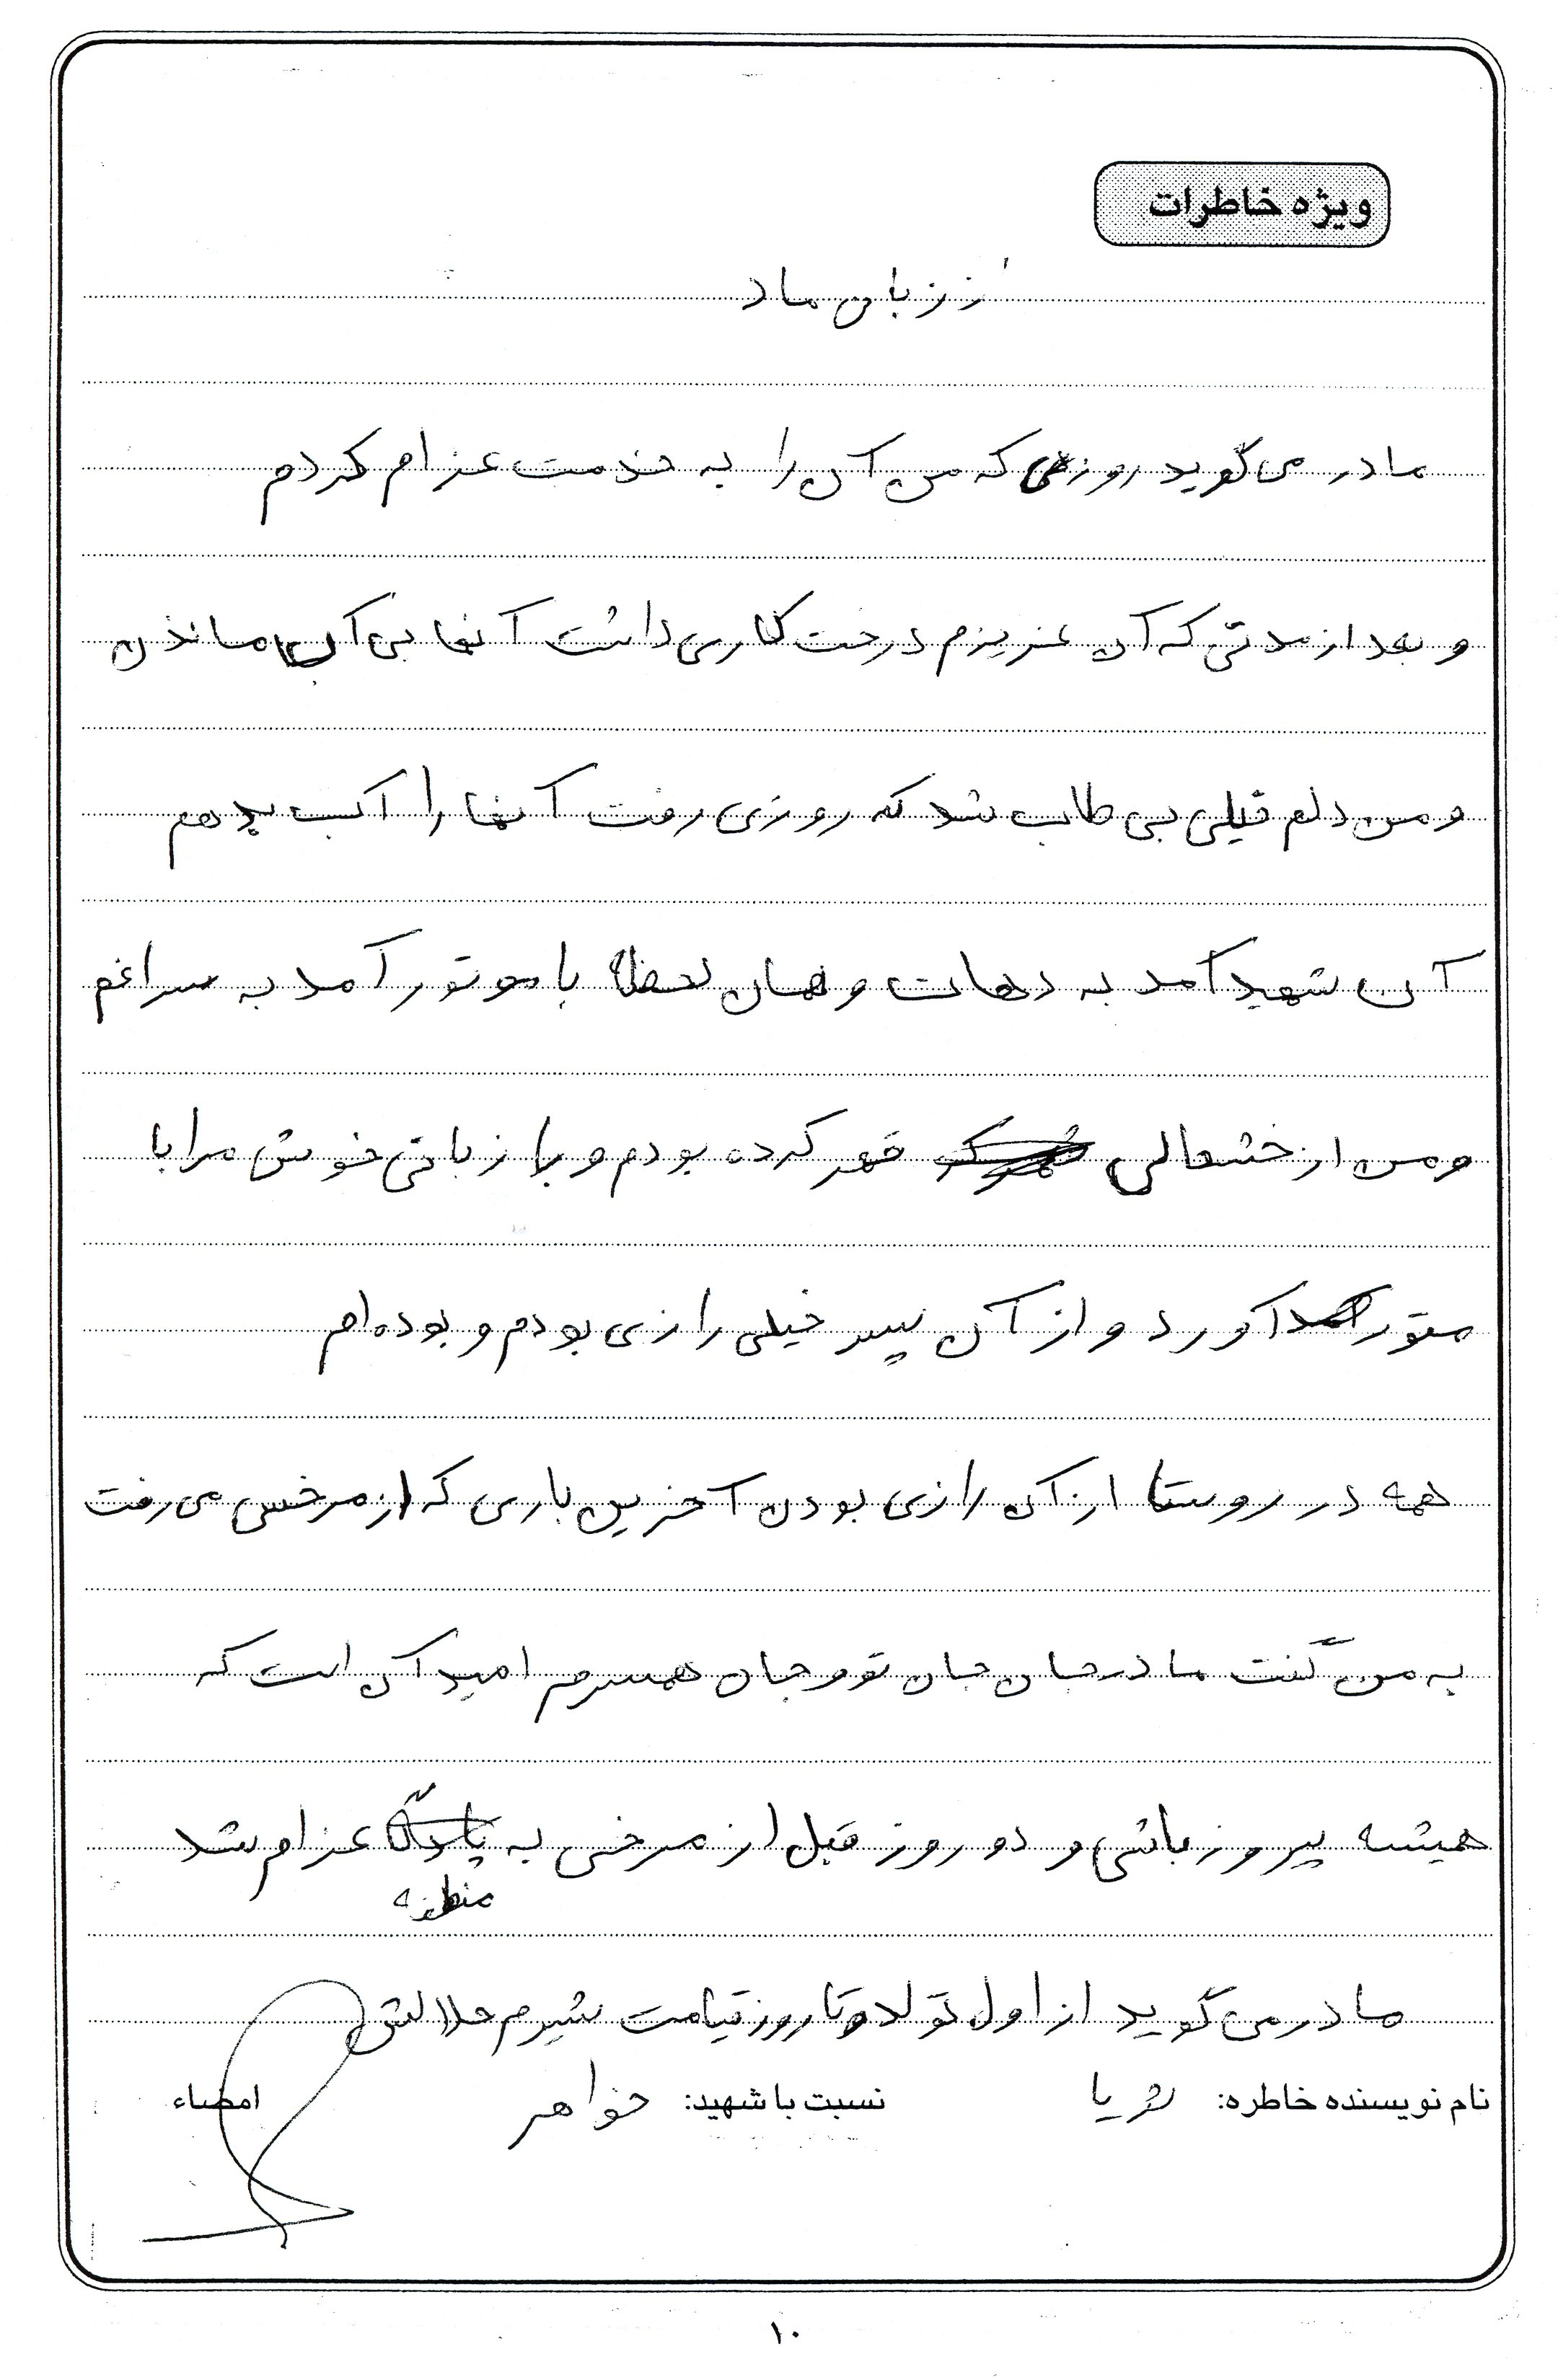 ویژه خاطرات
از زبان ماد
مادر می گوید روزی که من آن را به خدمت عزام کردم
و بعد از مدتی که آن عزیزم درخت کاری داشت آنها بی آب ماندن
و من دلم خیلی بی طاب شد که روزی رفت آنها را آب بدهم
آن شهید آمد به دهات و همان لحظه با موتور آمد به سراغم
و من از خشحالی قهر کرده بودم و با زبانی خوش مرا با
متور آورد و از آن پسر خیلی رازی بودم و بوده ام
همه در روستا از آن رازی بودن آخرین باری که از مرخسی می رفت
به من گفت مادر جان جان تو و جان همسرم امید آن است که
همیشه پیروز باشی و دو روز قبل از مرخسی به عزام شد
مادر می گوید از اول تولد تا روز قیامت شیرم حلالش
نام نویسنده خاطره: ثریا نسبت با شهید: خواهر امضاء
۱۰